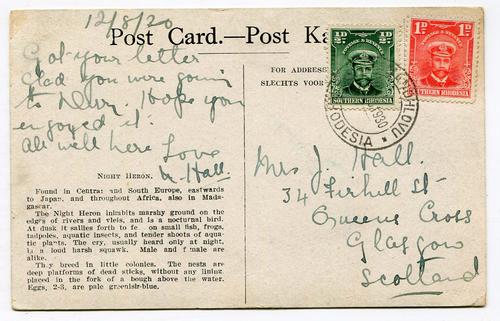 12/8/30
Post Card.—Post Ka
Got your letter
Glad you were going
to Hope you
enjoyed it.
All well here
Love
Hall
FOR ADDRESS
SLECHTS VOOR
½D ½D
POSTAGE & REVENUE
SOUTHERN RHODESIA
1D 1D
POSTAGE & REVENUE
SOUTHERN RHODESIA
1930
RHODESIA
Mrs J. Hall.
34 Firhill St
Queens Cross
Glasgow
Scotland
NIGHT HERON.
Found in Central and South Europe, eastwards
to Japan, and throughout Africa, also in Mada-
gascar.
The Night Heron inhabits marshy ground on the
edges of rivers and vleis, and is a nocturnal bird.
At dusk it sallies forth to feed on small fish, frogs,
tadpoles, aquatic insects, and tender shoots of aqua-
tic plants. The cry, usually heard only at night,
is a loud harsh squawk. Male and female are
alike.
They breed in little colonies. The nests are
deep platforms of dead sticks, without any lining,
placed in the fork of a bough above the water.
Eggs, 2-3, are pale greenish-blue.